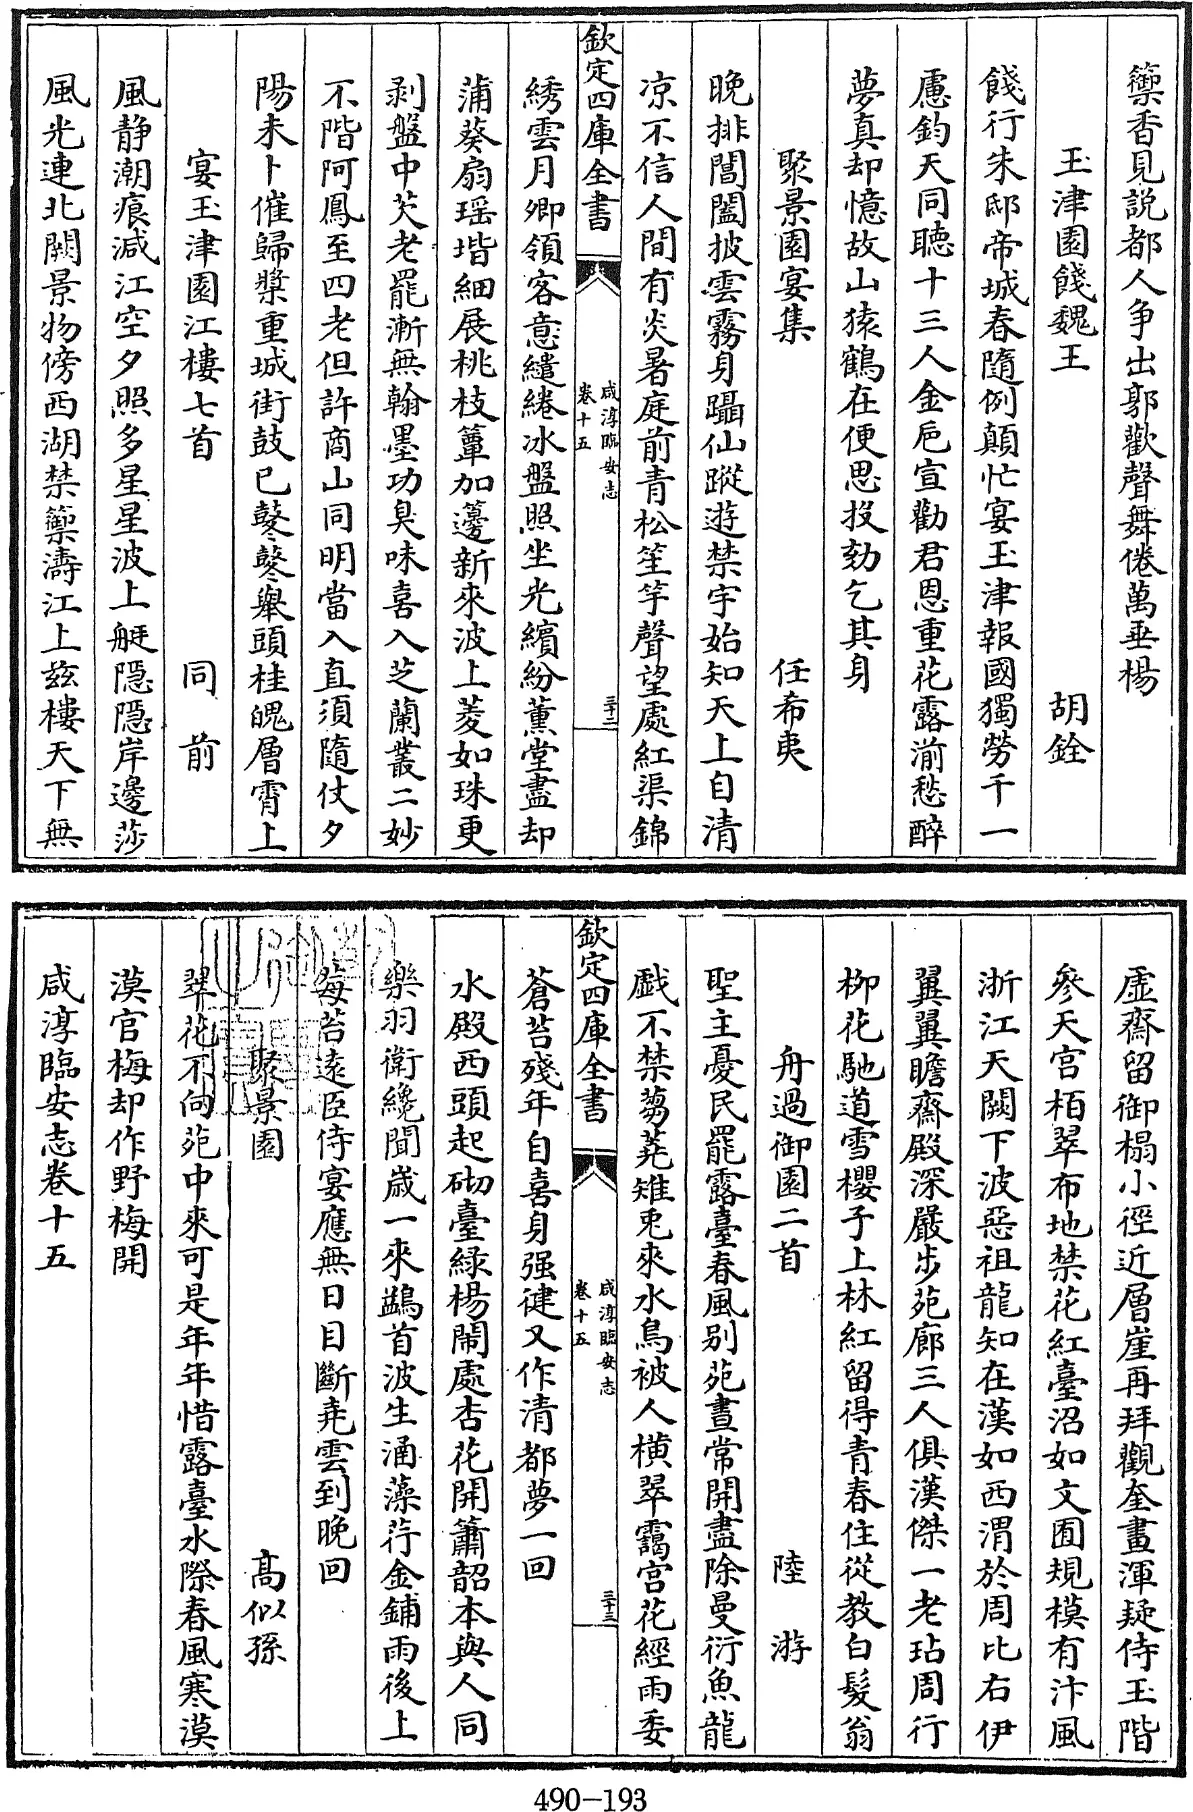 籞香見說都人争出郭歡聲舞倦萬垂楊
玉津園餞魏王 胡銓
餞行朱邸帝城春隨例顛忙宴玉津報國獨勞千一
慮鈞天同聽十三人金巵宣勸君恩重花露湔愁醉
夢真却憶故山猿鶴在便思投劾乞其身
聚景園宴集 任希夷
晚排閶闔披雲霧身躡仙蹤遊禁宇始知天上自清
凉不信人間有炎暑庭前青松笙竽聲望處紅渠錦
欽定四庫全書
咸淳臨安志
卷十五
三十二
綉雲月卿領客意繾綣冰盤照坐光繽紛薰堂盡却
蒲葵扇瑶堦細展桃枝簟加籩新來波上菱如珠更
剥盤中芡老罷漸無翰墨功臭味喜入芝蘭叢二妙
不階阿鳳至四老但許商山同明當入直須隨仗夕
陽未卜催歸槳重城街鼓已鼕鼕舉頭桂魄層霄上
宴玉津園江樓七首 同前
風静潮痕減江空夕照多星星波上艇隱隱岸邊莎
風光連北闕景物傍西湖禁籞濤江上兹樓天下無
虚齋留御榻小徑近層崖再拜觀奎畫渾疑侍玉階
參天宫栢翠布地禁花紅臺沼如文囿規模有汴風
浙江天闕下波惡祖龍知在漢如西渭於周比右伊
翼翼瞻齋殿深嚴步苑廊三人俱漢傑一老玷周行
栁花馳道雪櫻子上林紅留得青春住從教白髮翁
舟過御園二首 陸游
聖主憂民罷露臺春風别苑晝常開盡除曼衍魚龍
戲不禁芻蕘雉兎來水鳥被人横翠靄宫花經雨委
欽定四庫全書
咸淳臨安志
卷十五
三十三
蒼苔殘年自喜身强健又作清都夢一回
水殿西頭起砌臺緑楊閙處杏花開簫韶本與人同
樂羽衛纔聞歲一來鷁首波生涵藻荇金鋪雨後上
莓苔遠臣侍宴應無日目斷堯雲到晚回
聚景園 高似孫
翠花不向苑中來可是年年惜露臺水際春風寒漠
漠官梅却作野梅開
咸淳臨安志卷十五
490-193